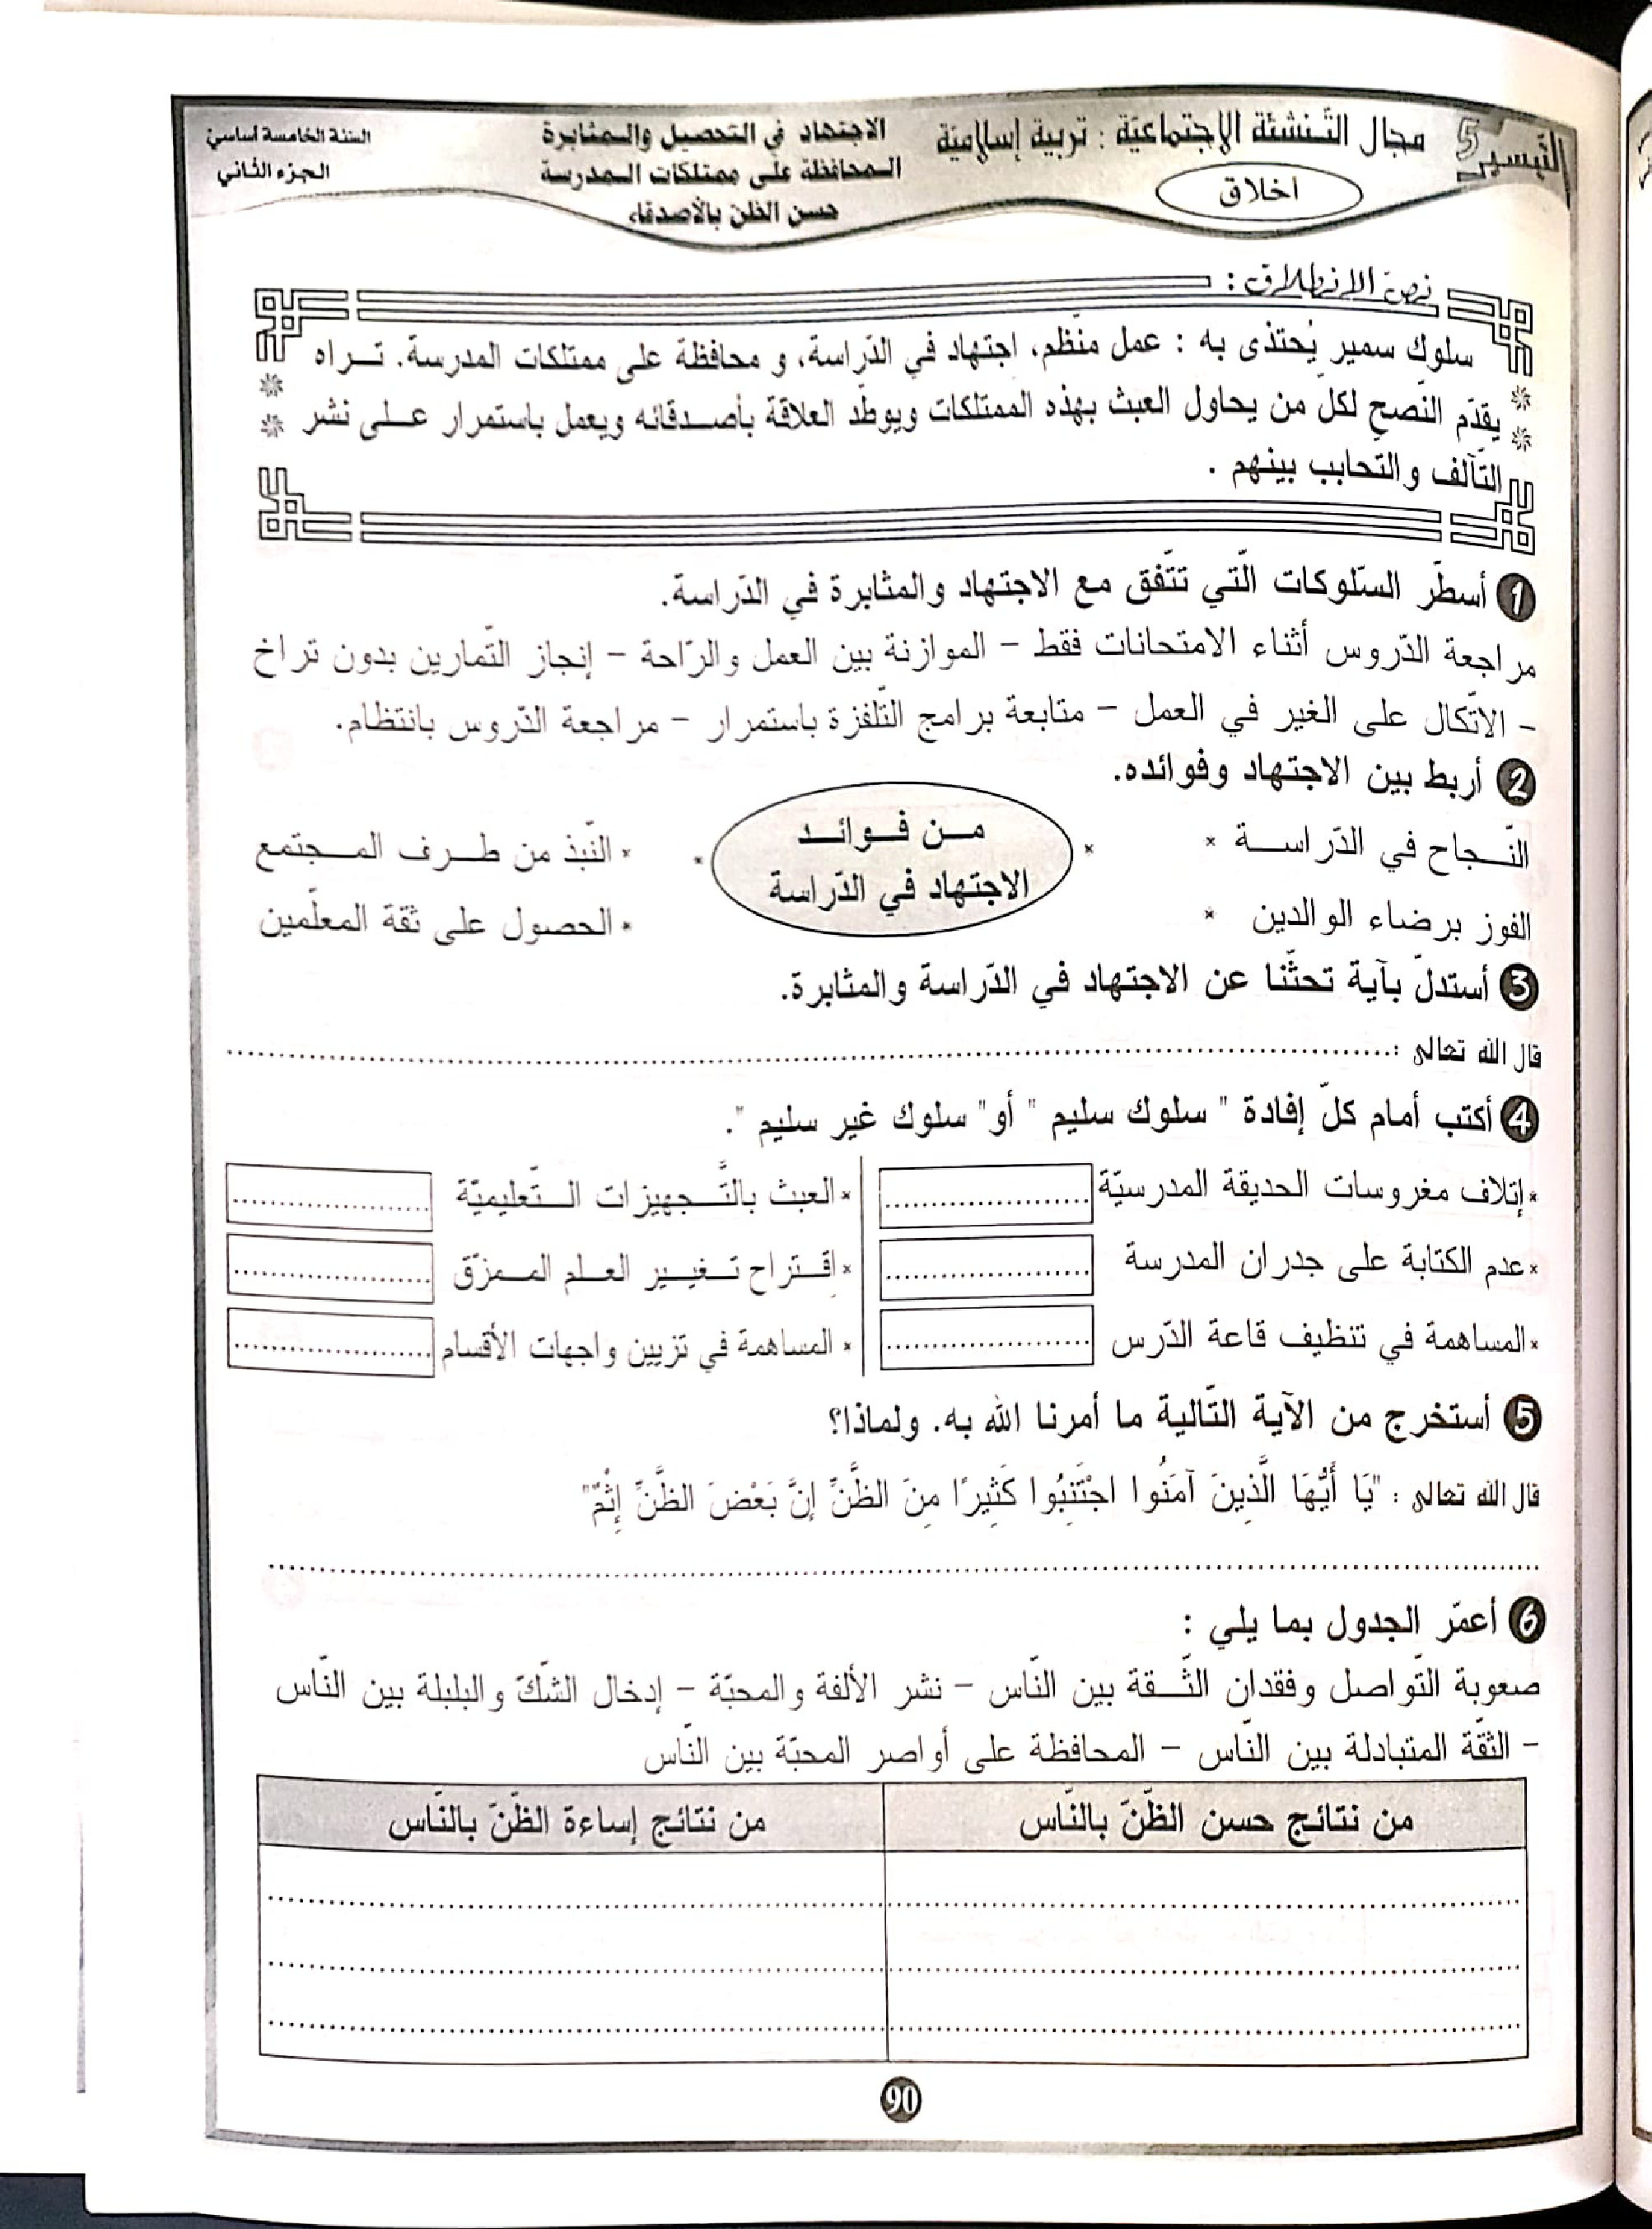 التيسير 5
مجال التّنشئة الاجتماعيّة : تربية إسلاميّة
أخلاق
الاجتهاد في التحصيل والمثابرة
المحافظة على ممتلكات المدرسة
حسن الظن بالأصدقاء
السنة الخامسة أساسي
الجزء الثاني
نصّ الانطلاق :
سلوك سمير يُحتذى به : عمل منّظم، اجتهاد في الدّراسة، و محافظة على ممتلكات المدرسة. تراه
يقدّم النّصح لكلّ من يحاول العبث بهذه الممتلكات ويوطّد العلاقة بأصدقائه ويعمل باستمرار على نشر
التّآلف والتّحابب بينهم .
1 أسطّر السّلوكات الّتي تتّفق مع الاجتهاد والمثابرة في الدّراسة.
مراجعة الدّروس أثناء الامتحانات فقط – الموازنة بين العمل والرّاحة – إنجاز التّمارين بدون تراخ
– الاتّكال على الغير في العمل – متابعة برامج التّلفزة باستمرار – مراجعة الدّروس بانتظام.
2 أربط بين الاجتهاد وفوائده.
النّجاح في الدّراسة *
الفوز برضاء الوالدين *
* من فوائد *
الاجتهاد في الدّراسة
* النّبذ من طرف المجتمع
* الحصول على ثقة المعلّمين
3 أستدلّ بآية تحثّنا عن الاجتهاد في الدّراسة والمثابرة.
قال الله تعالى :..............................
4 أكتب أمام كلّ إفادة " سلوك سليم " أو" سلوك غير سليم ".
* إتلاف مغروسات الحديقة المدرسيّة ....................
* العبث بالتّجهيزات التّعليميّة ....................
* عدم الكتابة على جدران المدرسة ....................
* اقتراح تغيير العلم الممزّق ....................
* المساهمة في تنظيف قاعة الدّرس ....................
* المساهمة في تزيين واجهات الأقسام ....................
5 أستخرج من الآية التّالية ما أمرنا الله به. ولماذا؟
قال الله تعالى : "يَا أَيُّهَا الَّذِينَ آمَنُوا اجْتَنِبُوا كَثِيرًا مِنَ الظَّنِّ إِنَّ بَعْضَ الظَّنِّ إِثْمٌ"
..............................
6 أعمّر الجدول بما يلي :
صعوبة التّواصل وفقدان الثّقة بين النّاس – نشر الألفة والمحبّة – إدخال الشّكّ والبلبلة بين النّاس
– الثقّة المتبادلة بين النّاس – المحافظة على أواصر المحبّة بين النّاس
من نتائج حسن الظّنّ بالنّاس
من نتائج إساءة الظّنّ بالنّاس
90